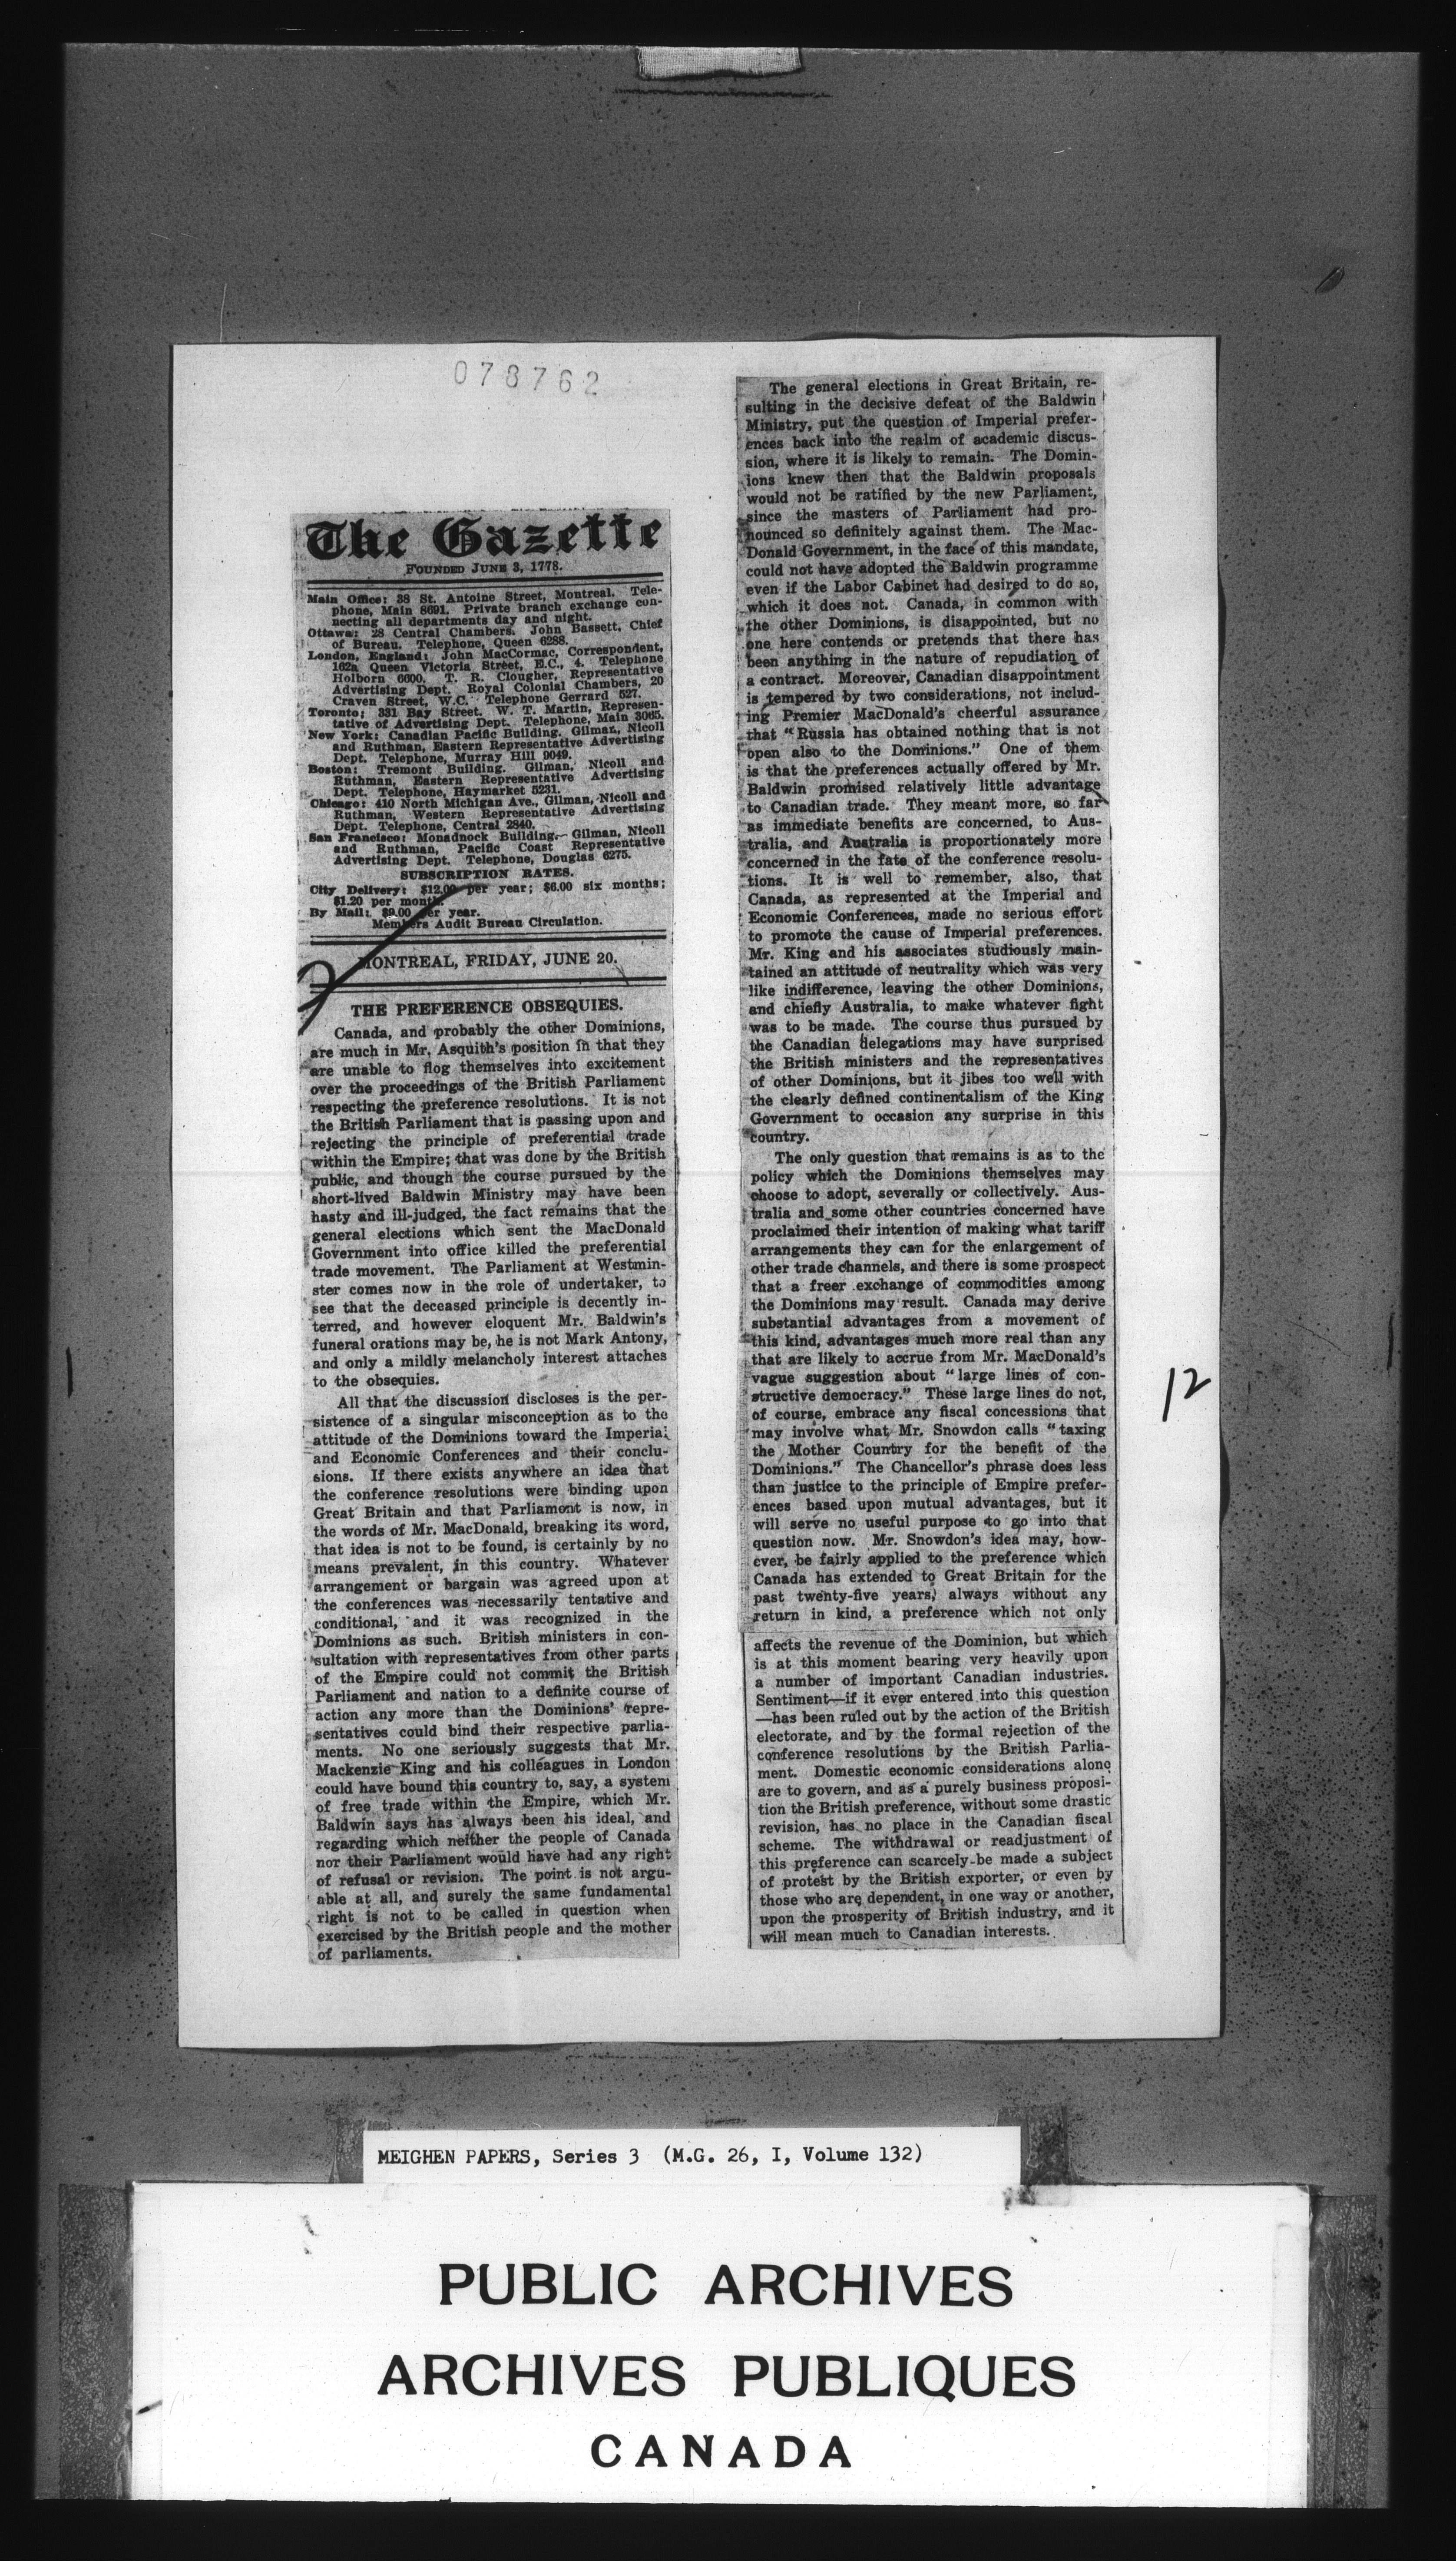 078762
The Gazette
FOUNDED JUNE 3, 1778.
Main Office: 38 St. Antoine Street, Montreal. Tele-
phone, Main 8691. Private branch exchange con-
necting all departments day and night.
Ottawa: 28 Central Chambers. John Bassett, Chief
of Bureau. Telephone, Queen 6288.
London, England: John MacCormac, Correspondent,
162a Queen Victoria Street, E.C., 4. Telephone
Holborn 6600. T. R. Clougher, Representative
Advertising Dept. Royal Colonial Chambers, 20
Craven Street, W.C. Telephone Gerrard 527.
Toronto: 331 Bay Street. W. T. Martin, Represen-
tative of Advertising Dept. Telephone, Main 3065.
New York: Canadian Pacific Building. Gilman, Nicoll
and Ruthman, Eastern Representative Advertising
Dept. Telephone, Murray Hill 9049.
Boston: Tremont Building. Gilman, Nicoll and
Ruthman, Eastern Representative Advertising
Dept. Telephone, Haymarket 5231.
Chicago: 410 North Michigan Ave., Gilman, Nicoll and
Ruthman, Western Representative Advertising
Dept. Telephone, Central 2840.
San Francisco: Monadnock Building. Gilman, Nicoll
and Ruthman, Pacific Coast Representative
Advertising Dept. Telephone, Douglas 6275.
SUBSCRIPTION RATES.
City Delivery: $12.00 per year; $6.00 six months;
$1.20 per month.
By Mail: $9.00 per year.
Members Audit Bureau Circulation.
MONTREAL, FRIDAY, JUNE 20.
THE PREFERENCE OBSEQUIES.
Canada, and probably the other Dominions,
are much in Mr. Asquith's position in that they
are unable to flog themselves into excitement
over the proceedings of the British Parliament
respecting the preference resolutions. It is not
the British Parliament that is passing upon and
rejecting the principle of preferential trade
within the Empire; that was done by the British
public, and though the course pursued by the
short-lived Baldwin Ministry may have been
hasty and ill-judged, the fact remains that the
general elections which sent the MacDonald
Government into office killed the preferential
trade movement. The Parliament at Westmin-
ster comes now in the role of undertaker, to
see that the deceased principle is decently in-
terred, and however eloquent Mr. Baldwin's
funeral orations may be, he is not Mark Antony,
and only a mildly melancholy interest attaches
to the obsequies.
All that the discussion discloses is the per-
sistence of a singular misconception as to the
attitude of the Dominions toward the Imperial
and Economic Conferences and their conclu-
sions. If there exists anywhere an idea that
the conference resolutions were binding upon
Great Britain and that Parliament is now, in
the words of Mr. MacDonald, breaking its word,
that idea is not to be found, is certainly by no
means prevalent, in this country. Whatever
arrangement or bargain was agreed upon at
the conferences was necessarily tentative and
conditional, and it was recognized in the
Dominions as such. British ministers in con-
sultation with representatives from other parts
of the Empire could not commit the British
Parliament and nation to a definite course of
action any more than the Dominions' repre-
sentatives could bind their respective parlia-
ments. No one seriously suggests that Mr.
Mackenzie King and his colleagues in London
could have bound this country to, say, a system
of free trade within the Empire, which Mr.
Baldwin says has always been his ideal, and
regarding which neither the people of Canada
nor their Parliament would have had any right
of refusal or revision. The point is not argu-
able at all, and surely the same fundamental
right is not to be called in question when
exercised by the British people and the mother
of parliaments.
The general elections in Great Britain, re-
sulting in the decisive defeat of the Baldwin
Ministry, put the question of Imperial prefer-
ences back into the realm of academic discus-
sion, where it is likely to remain. The Domin-
ions knew then that the Baldwin proposals
would not be ratified by the new Parliament,
since the masters of Parliament had pro-
nounced so definitely against them. The Mac-
Donald Government, in the face of this mandate,
could not have adopted the Baldwin programme
even if the Labor Cabinet had desired to do so,
which it does not. Canada, in common with
the other Dominions, is disappointed, but no
one here contends or pretends that there has
been anything in the nature of repudiation of
a contract. Moreover, Canadian disappointment
is tempered by two considerations, not includ-
ing Premier MacDonald's cheerful assurance
that "Russia has obtained nothing that is not
open also to the Dominions." One of them
is that the preferences actually offered by Mr.
Baldwin promised relatively little advantage
to Canadian trade. They meant more, so far
as immediate benefits are concerned, to Aus-
tralia, and Australia is proportionately more
concerned in the fate of the conference resolu-
tions. It is well to remember, also, that
Canada, as represented at the Imperial and
Economic Conferences, made no serious effort
to promote the cause of Imperial preferences.
Mr. King and his associates studiously main-
tained an attitude of neutrality which was very
like indifference, leaving the other Dominions,
and chiefly Australia, to make whatever fight
was to be made. The course thus pursued by
the Canadian delegations may have surprised
the British ministers and the representatives
of other Dominions, but it jibes too well with
the clearly defined continentalism of the King
Government to occasion any surprise in this
country.
The only question that remains is as to the
policy which the Dominions themselves may
choose to adopt, severally or collectively. Aus-
tralia and some other countries concerned have
proclaimed their intention of making what tariff
arrangements they can for the enlargement of
other trade channels, and there is some prospect
that a freer exchange of commodities among
the Dominions may result. Canada may derive
substantial advantages from a movement of
this kind, advantages much more real than any
that are likely to accrue from Mr. MacDonald's
vague suggestion about "large lines of con-
structive democracy." These large lines do not,
of course, embrace any fiscal concessions that
may involve what Mr. Snowdon calls "taxing
the Mother Country for the benefit of the
Dominions." The Chancellor's phrase does less
than justice to the principle of Empire prefer-
ences based upon mutual advantages, but it
will serve no useful purpose to go into that
question now. Mr. Snowdon's idea may, how-
ever, be fairly applied to the preference which
Canada has extended to Great Britain for the
past twenty-five years, always without any
return in kind, a preference which not only
affects the revenue of the Dominion, but which
is at this moment bearing very heavily upon
a number of important Canadian industries.
Sentiment—if it ever entered into this question
—has been ruled out by the action of the British
electorate, and by the formal rejection of the
conference resolutions by the British Parlia-
ment. Domestic economic considerations alone
are to govern, and as a purely business proposi-
tion the British preference, without some drastic
revision, has no place in the Canadian fiscal
scheme. The withdrawal or readjustment of
this preference can scarcely be made a subject
of protest by the British exporter, or even by
those who are dependent, in one way or another,
upon the prosperity of British industry, and it
will mean much to Canadian interests.
12
MEIGHEN PAPERS, Series 3 (M.G. 26, I, Volume 132)
PUBLIC ARCHIVES
ARCHIVES PUBLIQUES
CANADA